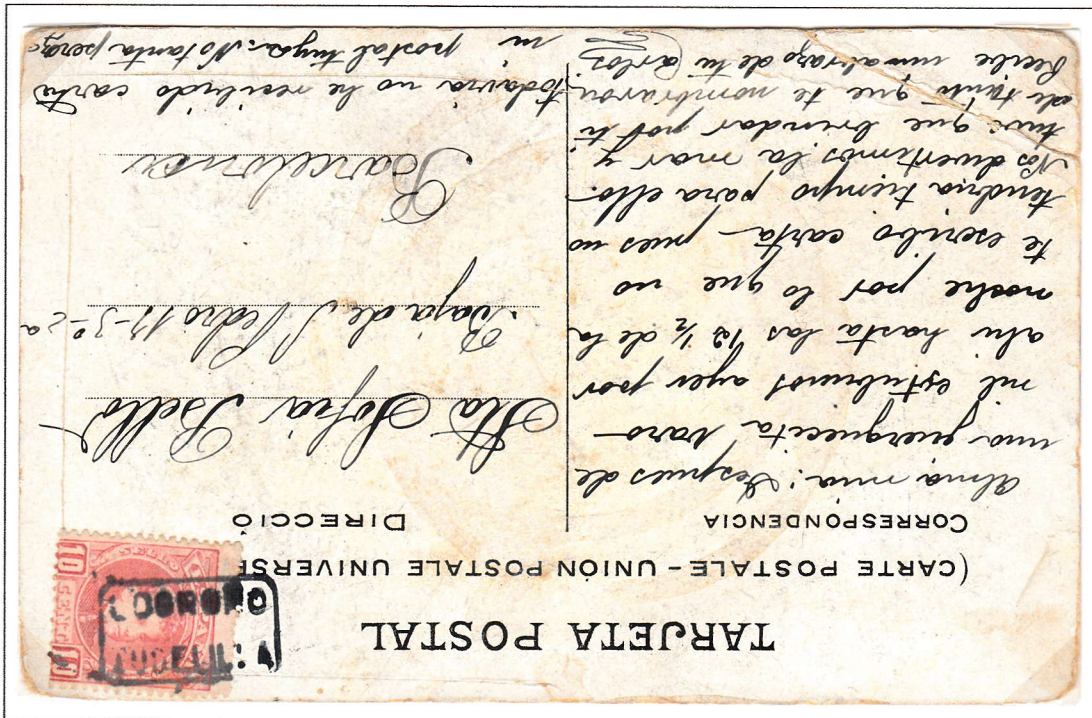 TARJETA POSTAL
(CARTE POSTALE - UNIÓN POSTALE UNIVERSE
CORRESPONDENCIA
Alma mia: Despues de
una juerguecita varo-
nil estubimos ayer por
ahi hasta las 12 ½ de la
noche por lo que no
te escribo carta - pues no
tendria tiempo para ello.
Nos divertimos la mar y
tuve que brindar por ti
de tanto que te nombraron,
Recibe un abrazo de tu Carlos
DIRECCIÓ
Sta Sofia Bello
Baja de S. Pedro 13-3º-2a
Barcelona
todavia no he recibido carta
ni postal tuya. No tanta
10 CENT. 10
LOGROÑO
TUDELILLA